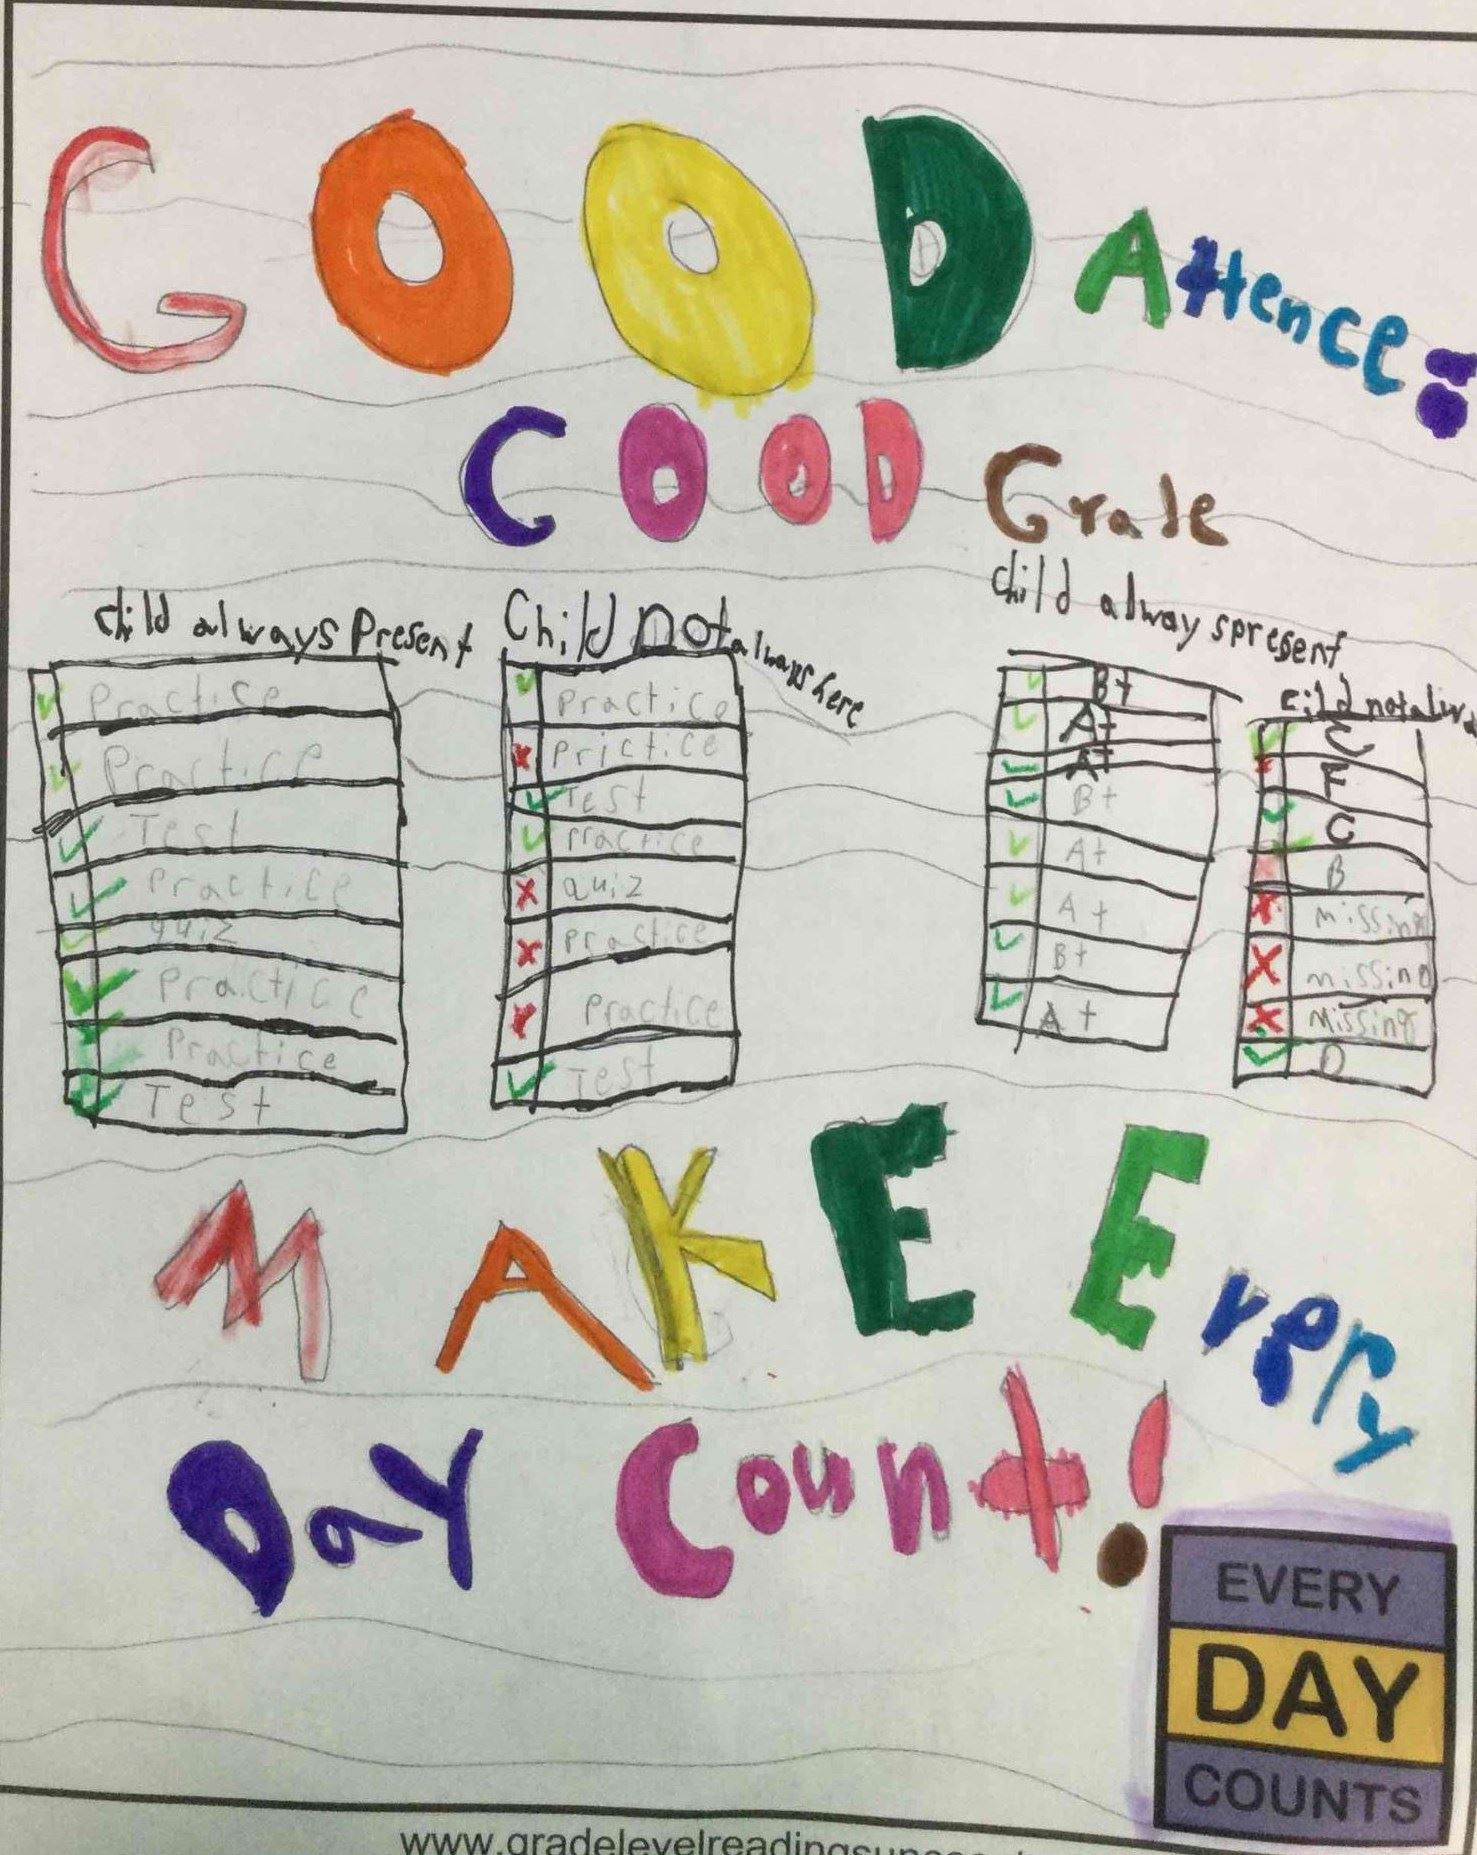 GOOD Attence:
GOOD Grade
child always Present
Child not always here
child alway spresent
Practice
Practice
Test
Practice
quiz
Practice
Practice
Test
Practice
Prictice
Test
Practice
quiz
Practice
Practice
Test
B+
A+
A+
B+
A+
A+
B+
A+
C
F
C
B
missing
missing
Missing
D
MAKE Every
Day Count!
EVERY
DAY
COUNTS